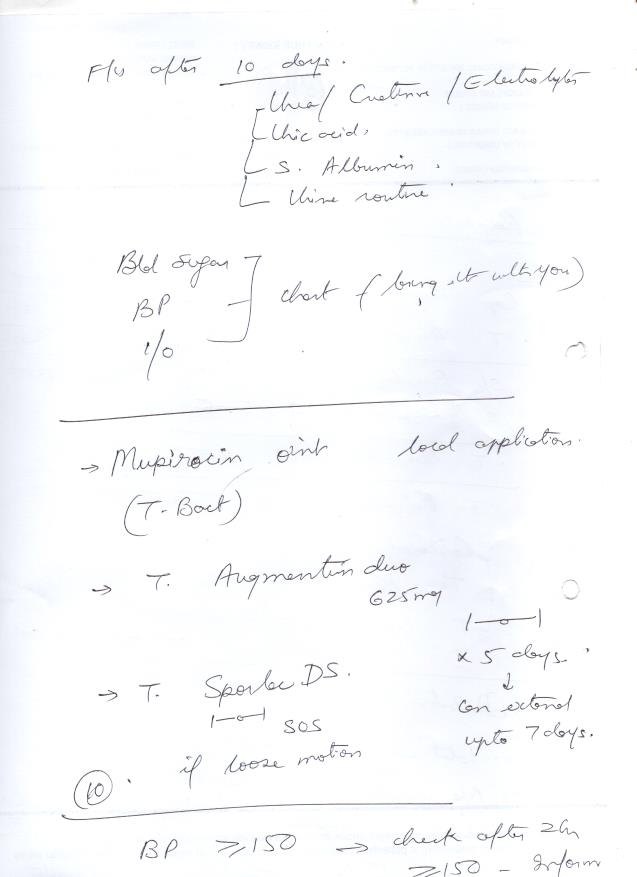 F/u after 10 days.
Urea / Creatinine / Electrolytes
Uric acid,
S. Albumin.
Urine routine.
Bld sugar
BP
I/O
chart (bring it with you)
→ Mupirocin oint local application.
(T-Bact)
→ T. Augmentin duo
625mg
1—o—1
x 5 days.
↓
can extend
upto 7 days.
→ T. Sporlac DS.
1—o—1 SOS
if loose motion
10.
BP ≥150 → check after 2h
≥150 - Inform